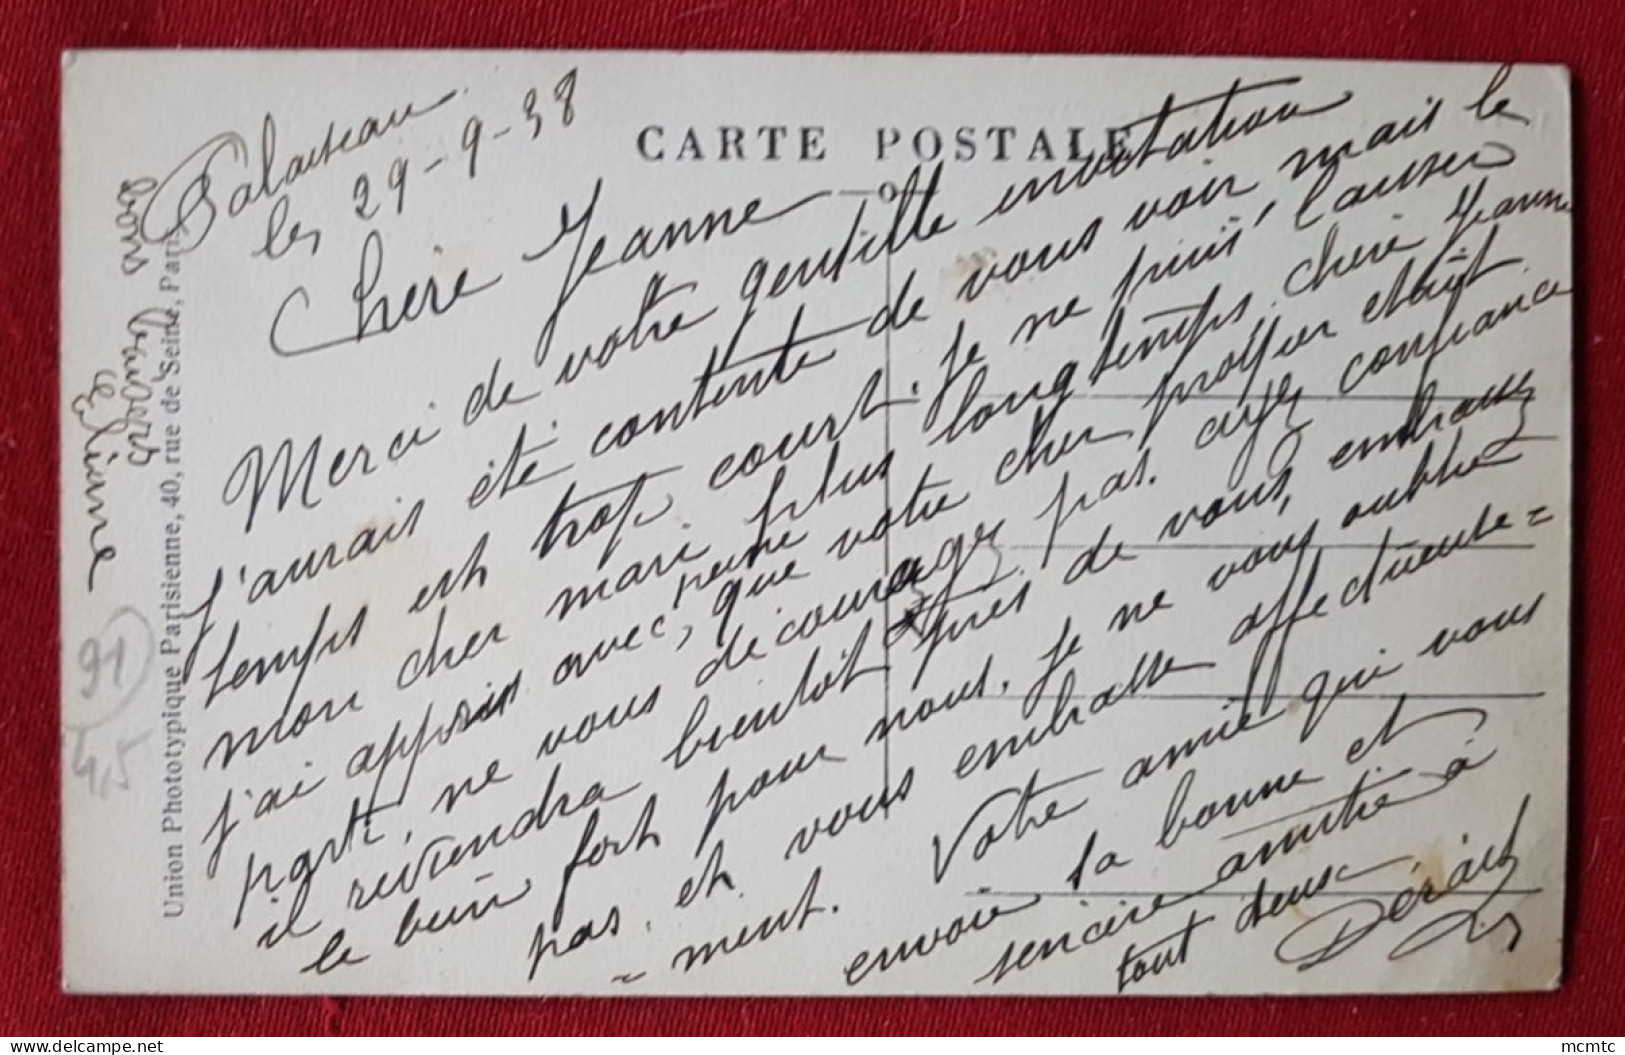 CARTE POSTALE
Palaiseau
les 29-9-38
Chère Jeanne
Merci de votre gentille invitation
J'aurais été contente de vous voir mais le
temps est trop court. Je ne puis, laisser
mon cher mari plus longtemps. chère Jeanne
j'ai appris avec peine, que votre cher était
parti, ne vous découragez pas. ayez confiance
il reviendra bientôt près de vous, embrassez
le bien fort pour nous. Je ne vous oublie
pas. et vous embrasse affectueuse=
=ment. Votre amie qui vous
envoie sa bonne et
sencière amitié à
tout deux
bons baisers
Eliane
Union Phototypique Parisienne, 40, rue de Seine, Paris
91
4,5
mcmtc